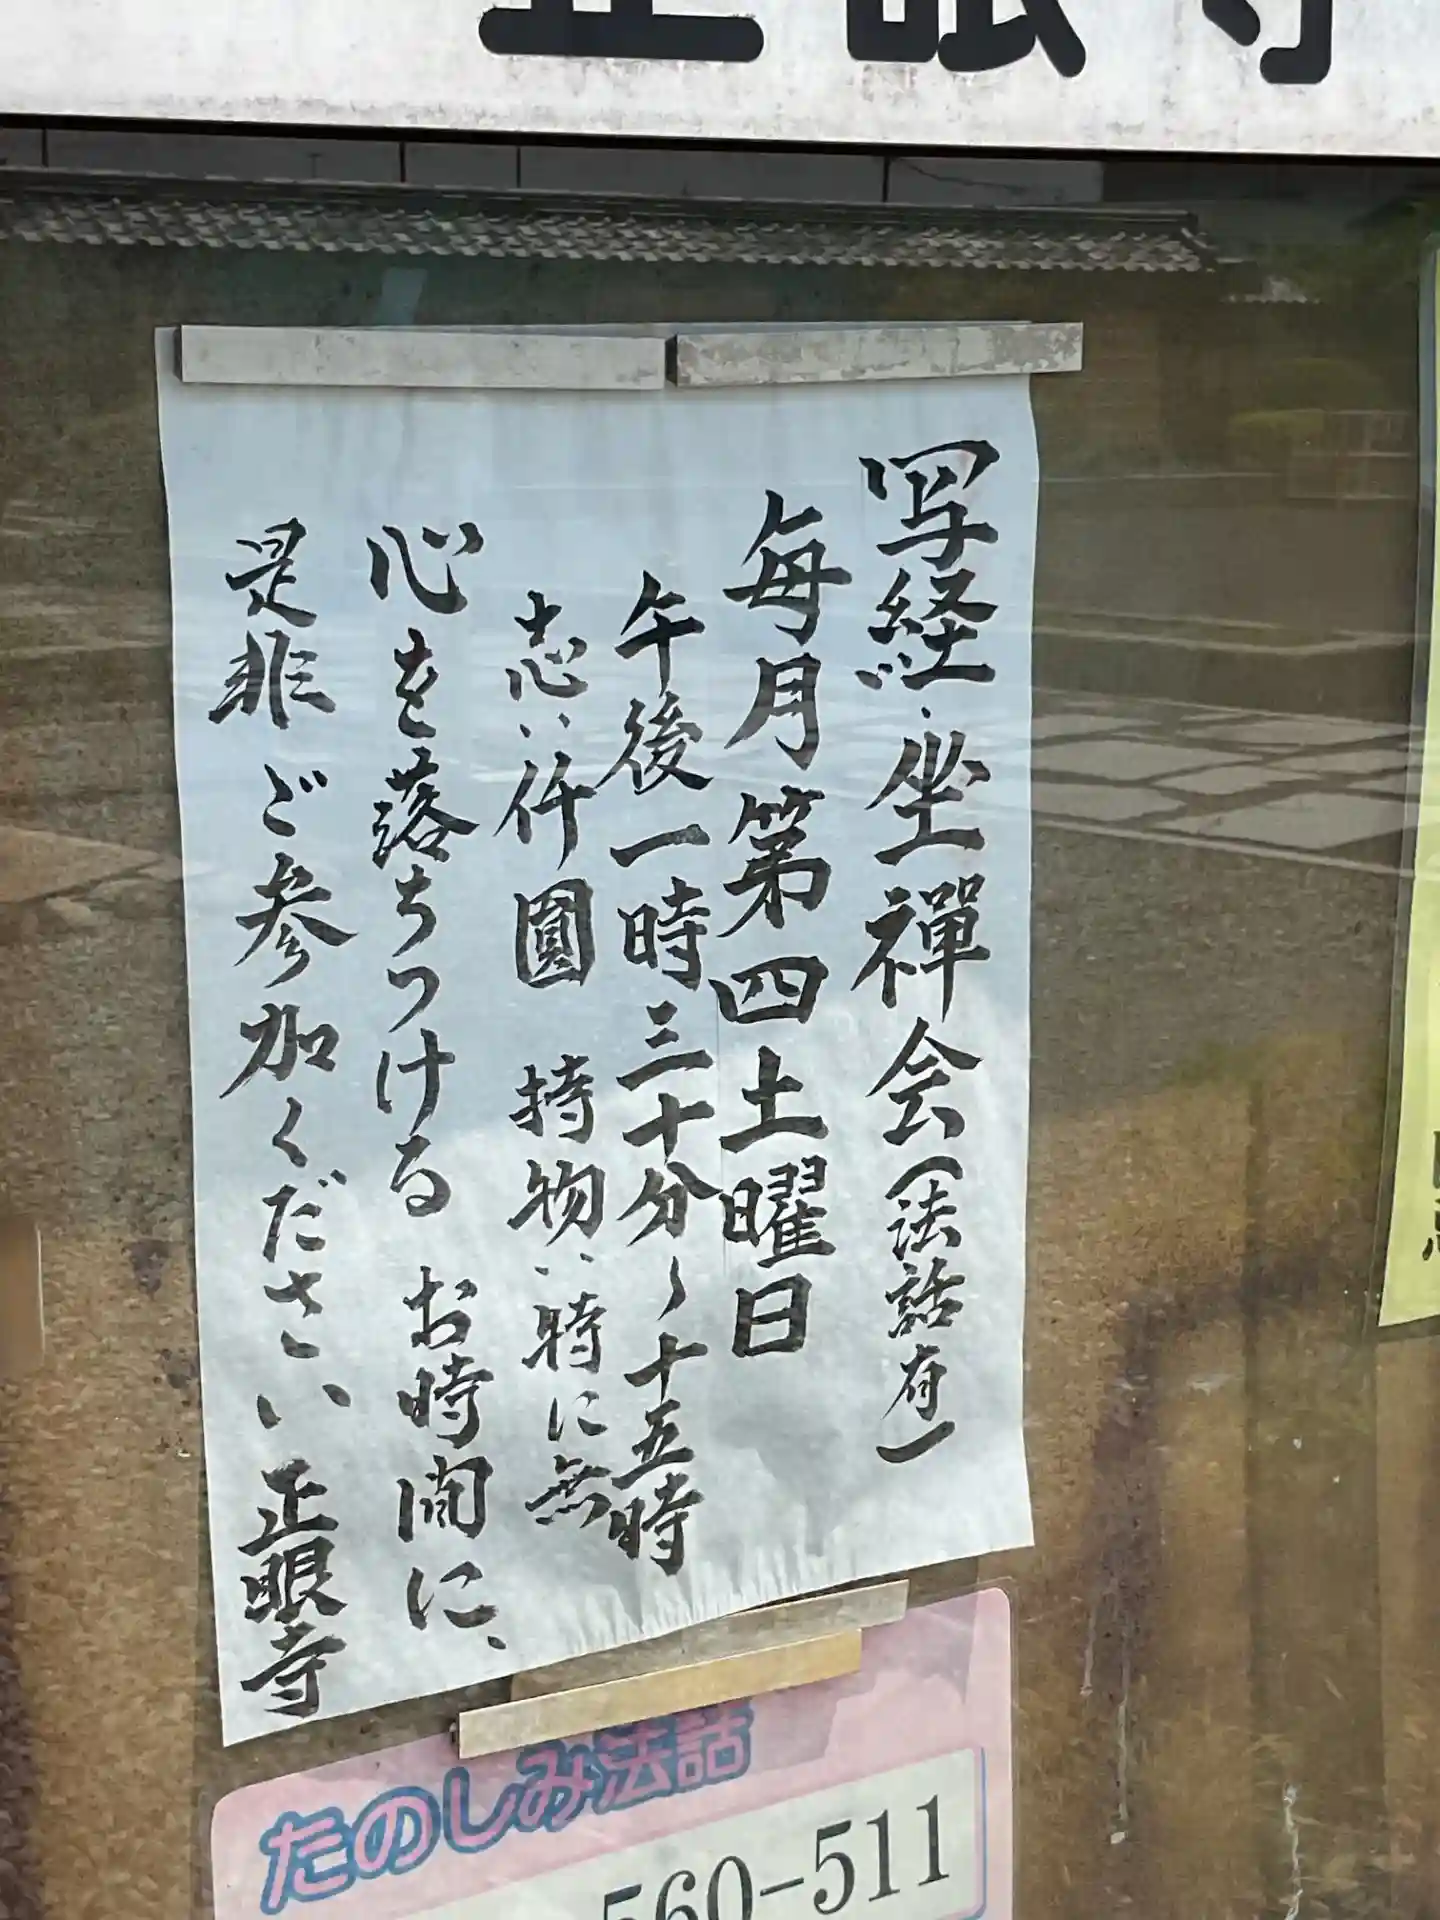 正眼寺
写経・坐禪会（法話有）
毎月第四土曜日
午後一時三十分〜十五時
志：仟圓 持物：特に無
心を落ちつけるお時間に、
是非ご参加ください 正眼寺
たのしみ法話
560-511